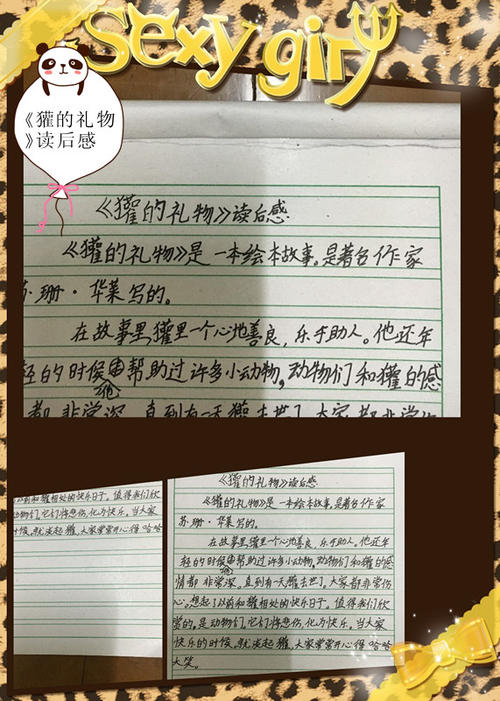 Sexy girl
《獾的礼物
》读后感
《獾的礼物》读后感
《獾的礼物》是一本绘本故事。是著名作家
苏珊·华莱写的。
在故事里,獾里一个心地善良,乐于助人。他还年
轻的时候他帮助过许多小动物,动物们和獾的感
都非常深。直到有一天獾去世了。大家都非常伤
以前和獾相处的快乐日子。值得我们欣
动物们,它们将悲伤,化为快乐。当大家
时候,就谈起獾,大家常常开心得哈哈
《獾的礼物》读后感
《獾的礼物》是一本绘本故事。是著名作家
苏珊·华莱写的。
在故事里,獾里一个心地善良,乐于助人。他还年
轻的时候他帮助过许多小动物,动物们和獾的感
情都非常深。直到有一天獾去世了。大家都非常伤
心。想起了以前和獾相处的快乐日子。值得我们欣
赏的,是动物们,它们将悲伤,化为快乐。当大家
快乐的时候,就谈起獾,大家常常开心得哈哈
大笑。